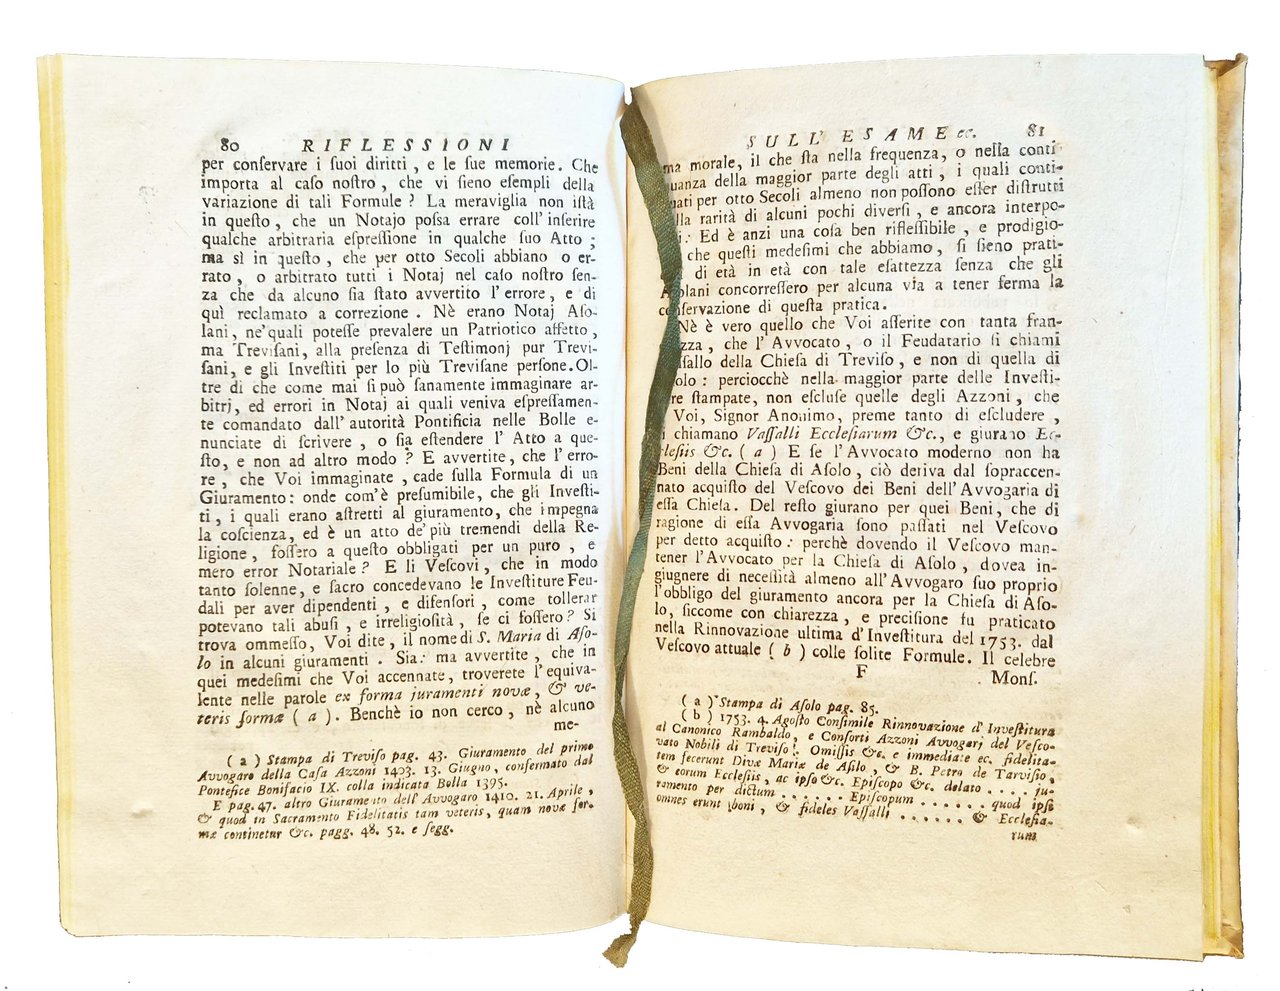 80 RIFLESSIONI
per conſervare i ſuoi diritti, e le ſue memorie. Che
importa al caſo noſtro, che vi ſieno eſempli della
variazione di tali Formule? La meraviglia non iſtà
in queſto, che un Notajo poſsa errare coll'inſerire
qualche arbitraria eſpreſſione in qualche ſuo Atto;
ma sì in queſto, che per otto Secoli abbiano o er-
rato, o arbitrato tutti i Notaj nel caſo noſtro ſen-
za che da alcuno ſia ſtato avvertito l'errore, e di
quì reclamato a correzione. Nè erano Notaj Aſo-
lani, ne'quali poteſſe prevalere un Patriotico affetto,
ma Treviſani, alla preſenza di Teſtimonj pur Trevi-
ſani, e gli Inveſtiti per lo più Treviſane perſone. Ol-
tre di che come mai ſi può ſanamente immaginare ar-
bitrj, ed errori in Notaj ai quali veniva eſpreſſamen-
te comandato dall'autorità Pontificia nelle Bolle e-
nunciate di ſcrivere, o ſia eſtendere l'Atto a que-
ſto, e non ad altro modo? E avvertite, che l'erro-
re, che Voi immaginate, cade ſulla Formula di un
Giuramento: onde com'è preſumibile, che gli Inveſti-
ti, i quali erano aſtretti al giuramento, che impegna
la coſcienza, ed è un atto de'più tremendi della Re-
ligione, foſſero a queſto obbligati per un puro, e
mero error Notariale? E li Veſcovi, che in modo
tanto ſolenne, e ſacro concedevano le Inveſtiture Feu-
dali per aver dipendenti, e difenſori, come tollerar
potevano tali abuſi, e irreligioſità, ſe ci foſſero? Si
trova ommeſſo, Voi dite, il nome di S. Maria di Aſo-
lo in alcuni giuramenti. Sia: ma avvertite, che in
quei medeſimi che Voi accennate, troverete l'equiva-
lente nelle parole ex forma juramenti novæ, & ve-
teris formæ (a). Benchè io non cerco, nè alcuno
me-
(a) Stampa di Treviſo pag. 43. Giuramento del primo
Avvogaro della Caſa Azzoni 1403. 13. Giugno, confermato dal
Pontefice Bonifacio IX. colla indicata Bolla 1395.
E pag. 47. altro Giuramento dell'Avvogaro 1410. 21. Aprile,
& quod in Sacramento Fidelitatis tam veteris, quam novæ for-
mæ continetur &c. pagg. 48. 52. e ſegg.
SULL' ESAME ec. 81
ma morale, il che ſta nella frequenza, o nella conti
nuanza della maggior parte degli atti, i quali conti-
nuati per otto Secoli almeno non poſſono eſſer diſtrutti
lla rarità di alcuni pochi diverſi, e ancora interpo-
i: Ed è anzi una coſa ben rifleſſibile, e prodigio-
che queſti medeſimi che abbiamo, ſi ſieno prati-
di età in età con tale eſattezza ſenza che gli
Aſolani concorreſſero per alcuna via a tener ferma la
conſervazione di queſta pratica.
Nè è vero quello che Voi aſſerite con tanta fran-
zza, che l'Avvocato, o il Feudatario ſi chiami
ſallo della Chieſa di Treviſo, e non di quella di
olo: perciocchè nella maggior parte delle Inveſti-
re ſtampate, non eſcluſe quelle degli Azzoni, che
Voi, Signor Anonimo, preme tanto di eſcludere,
i chiamano Vaſſalli Eccleſiarum &c., e giurano Ec-
cleſiis &c. (a) E ſe l'Avvocato moderno non ha
Beni della Chieſa di Aſolo, ciò deriva dal ſopraccen-
nato acquiſto del Veſcovo dei Beni dell'Avvogaria di
eſſa Chieſa. Del reſto giurano per quei Beni, che di
ragione di eſſa Avvogaria ſono paſſati nel Veſcovo
per detto acquiſto: perchè dovendo il Veſcovo man-
tener l'Avvocato per la Chieſa di Aſolo, dovea in-
giugnere di neceſſità almeno all'Avvogaro ſuo proprio
l'obbligo del giuramento ancora per la Chieſa di Aſo-
lo, ſiccome con chiarezza, e preciſione fu praticato
nella Rinnovazione ultima d'Inveſtitura del 1753. dal
Veſcovo attuale (b) colle ſolite Formule. Il celebre
F Monſ.
(a) Stampa di Aſolo pag. 85.
(b) 1753. 4. Agoſto Conſimile Rinnovazione d'Inveſtitura
al Canonico Rambaldo, e Conſorti Azzoni Avvogarj del Veſco-
vato Nobili di Treviſo. Omiſſis &c. e immediate ec. fidelita-
tem fecerunt Divæ Mariæ de Aſilo, & B. Petro de Tarviſio,
& eorum Eccleſiis, ac ipſo &c. Epiſcopo &c. delato .... ju-
ramento per dictum ...... Epiſcopum ...... quod ipſi
omnes erunt boni, & fideles Vaſſalli ...... & Eccleſia-
rum